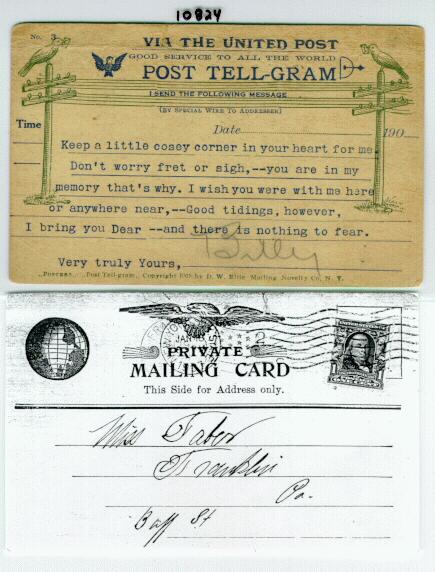 10824
No. 3
VIA THE UNITED POST
GOOD SERVICE TO ALL THE WORLD
POST TELL-GRAM
I SEND THE FOLLOWING MESSAGE
(BY SPECIAL WIRE TO ADDRESSEE)
Time
Date 190
Keep a little cosey corner in your heart for me.
Don't worry fret or sigh,--you are in my
memory that's why. I wish you were with me here
or anywhere near,--Good tidings, however,
I bring you Dear --and there is nothing to fear.
Billy
Very truly Yours,
Post Tell-gram, Copyright 1905 by D. W. Mailing Novelty Co. N. Y.
JAN
2
PRIVATE
MAILING CARD
This Side for Address only.
Miss Taber
Franklin
Pa.
St